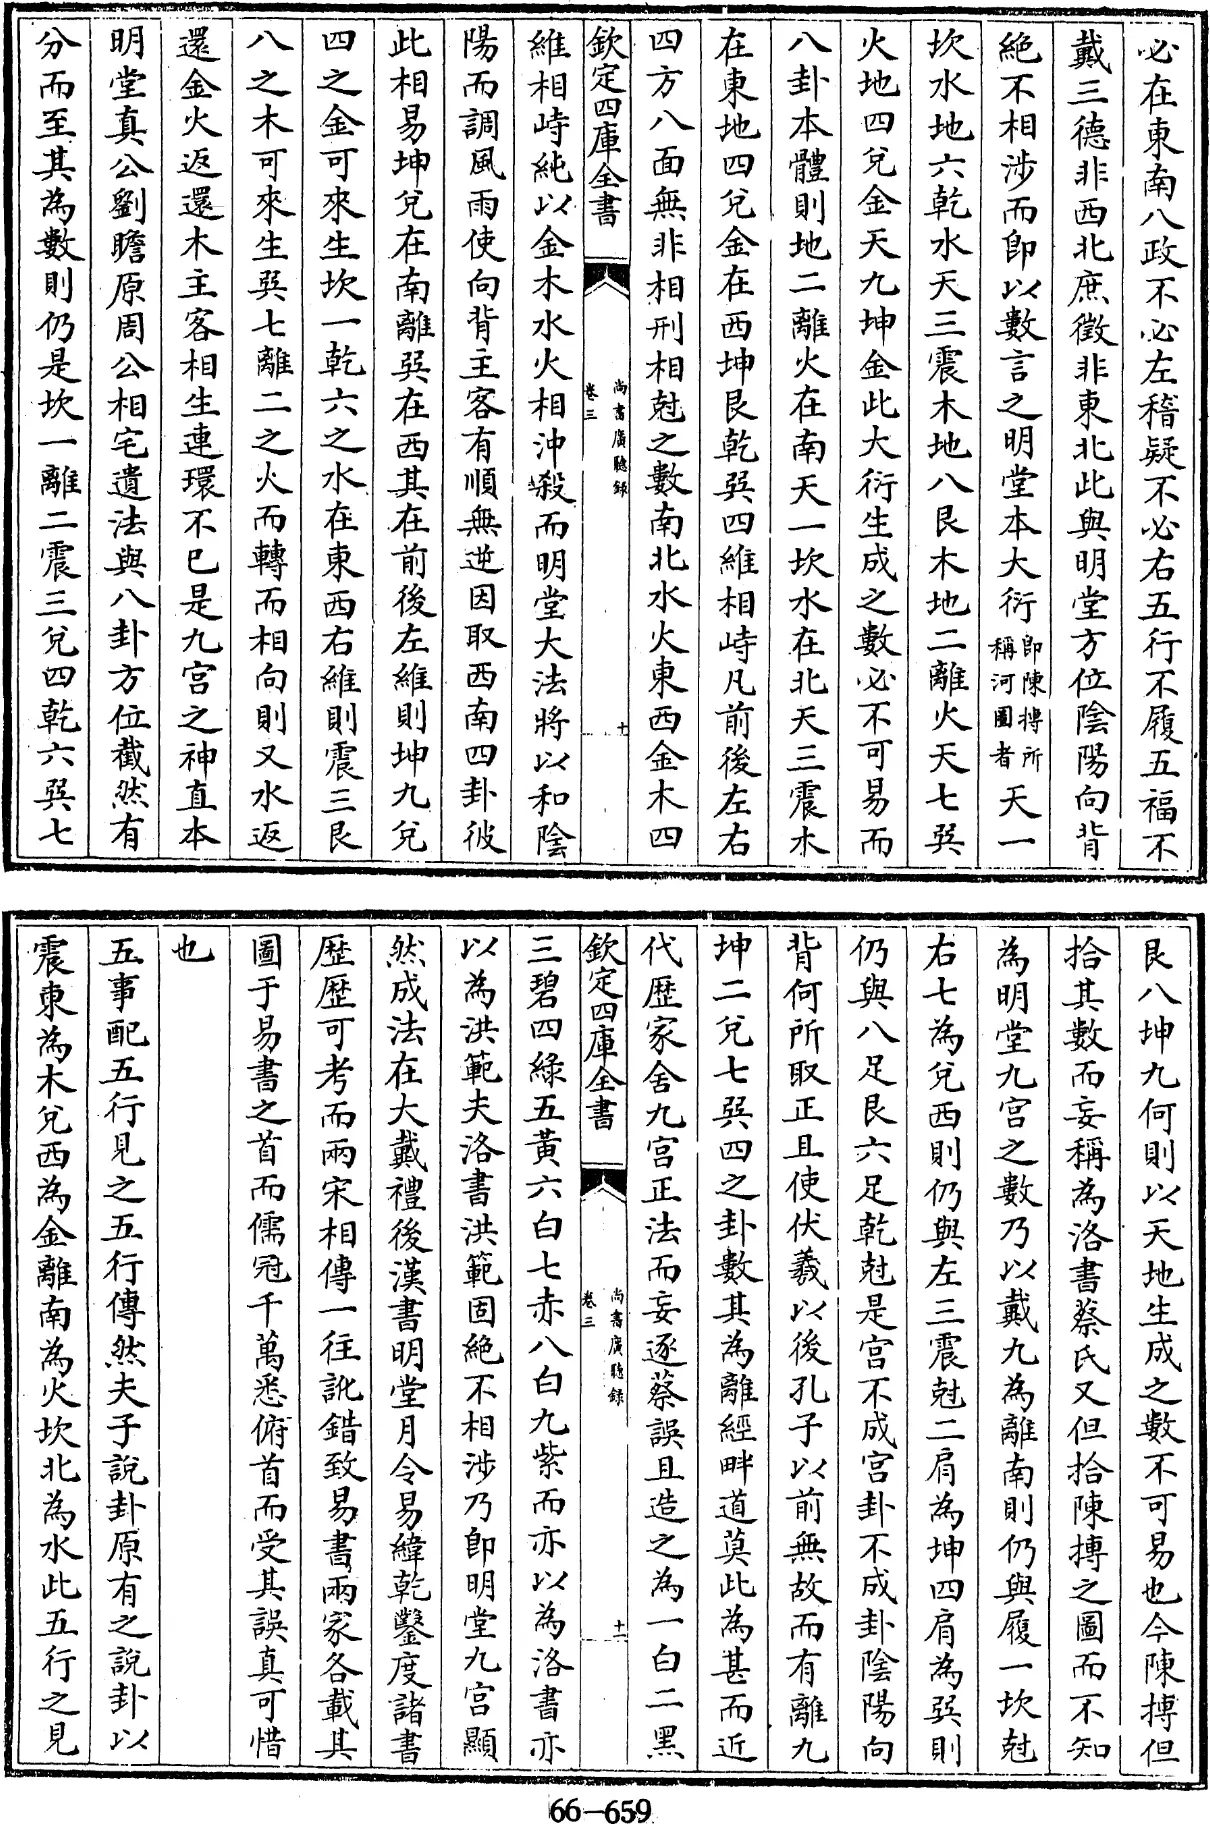 必在東南八政不必左稽疑不必右五行不履五福不
戴三德非西北庶徵非東北此與明堂方位陰陽向背
絕不相涉而卽以數言之明堂本大衍卽陳摶所稱河圖者天一
坎水地六乾水天三震木地八艮木地二離火天七巽
火地四兌金天九坤金此大衍生成之數必不可易而
八卦本體則地二離火在南天一坎水在北天三震木
在東地四兌金在西坤艮乾巽四維相峙凡前後左右
四方八面無非相刑相尅之數南北水火東西金木四
欽定四庫全書
尚書廣聽錄
卷三
十
維相峙純以金木水火相沖殺而明堂大法將以和陰
陽而調風雨使向背主客有順無逆因取西南四卦彼
此相易坤兌在南離巽在西其在前後左維則坤九兌
四之金可來生坎一乾六之水在東西右維則震三艮
八之木可來生巽七離二之火而轉而相向則又水返
還金火返還木主客相生連環不已是九宮之神直本
明堂真公劉瞻原周公相宅遺法與八卦方位截然有
分而至其為數則仍是坎一離二震三兌四乾六巽七
艮八坤九何則以天地生成之數不可易也今陳摶但
拾其數而妄稱為洛書蔡氏又但拾陳摶之圖而不知
為明堂九宮之數乃以戴九為離南則仍與履一坎尅
右七為兌西則仍與左三震尅二肩為坤四肩為巽則
仍與八足艮六足乾尅是宮不成宮卦不成卦陰陽向
背何所取正且使伏羲以後孔子以前無故而有離九
坤二兌七巽四之卦數其為離經畔道莫此為甚而近
代歷家舍九宮正法而妄逐蔡誤且造之為一白二黑
欽定四庫全書
尚書廣聽錄
卷三
十一
三碧四綠五黃六白七赤八白九紫而亦以為洛書亦
以為洪範夫洛書洪範固絕不相涉乃卽明堂九宮顯
然成法在大戴禮後漢書明堂月令易緯乾鑿度諸書
歷歷可考而兩宋相傳一往訛錯致易書兩家各載其
圖于易書之首而儒冠千萬悉俯首而受其誤真可惜
也
五事配五行見之五行傳然夫子說卦原有之說卦以
震東為木兌西為金離南為火坎北為水此五行之見
66-659